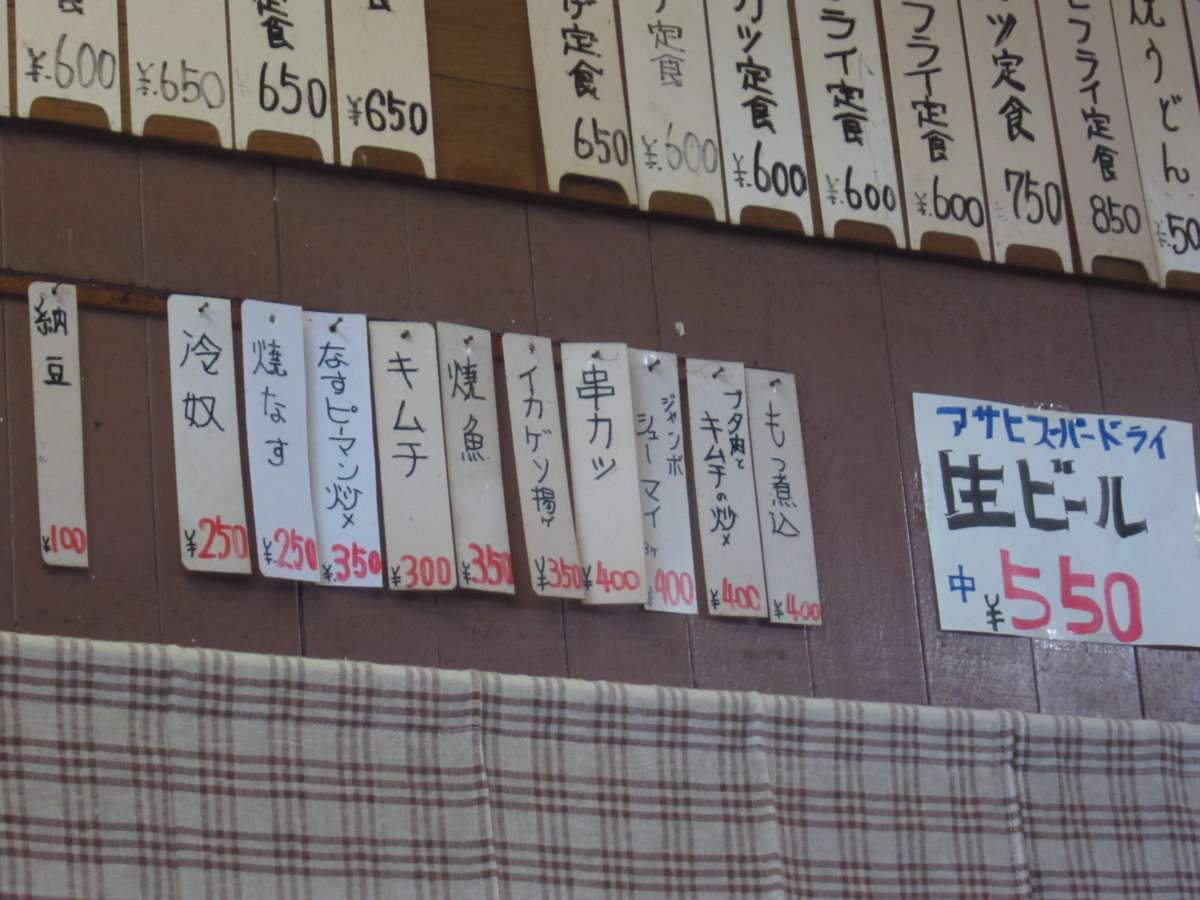 ¥.600
¥.650
定食
650
¥650
定食
650
定食
¥.600
カツ定食
¥.600
ライ定食
¥.600
フライ定食
¥.600
ツ定食
750
フライ定食
850
焼うどん
¥.50
納豆
¥100
冷奴
¥250
焼なす
¥.250
なすピーマン炒メ
¥.350
キムチ
¥300
焼魚
¥350
イカゲソ揚ゲ
¥350
串カツ
¥400
ジャンボ
シューマイ 3ヶ
¥400
ブタ肉と
キムチの炒メ
¥400
もつ煮込
¥400
アサヒスーパードライ
生ビール
中 ¥550